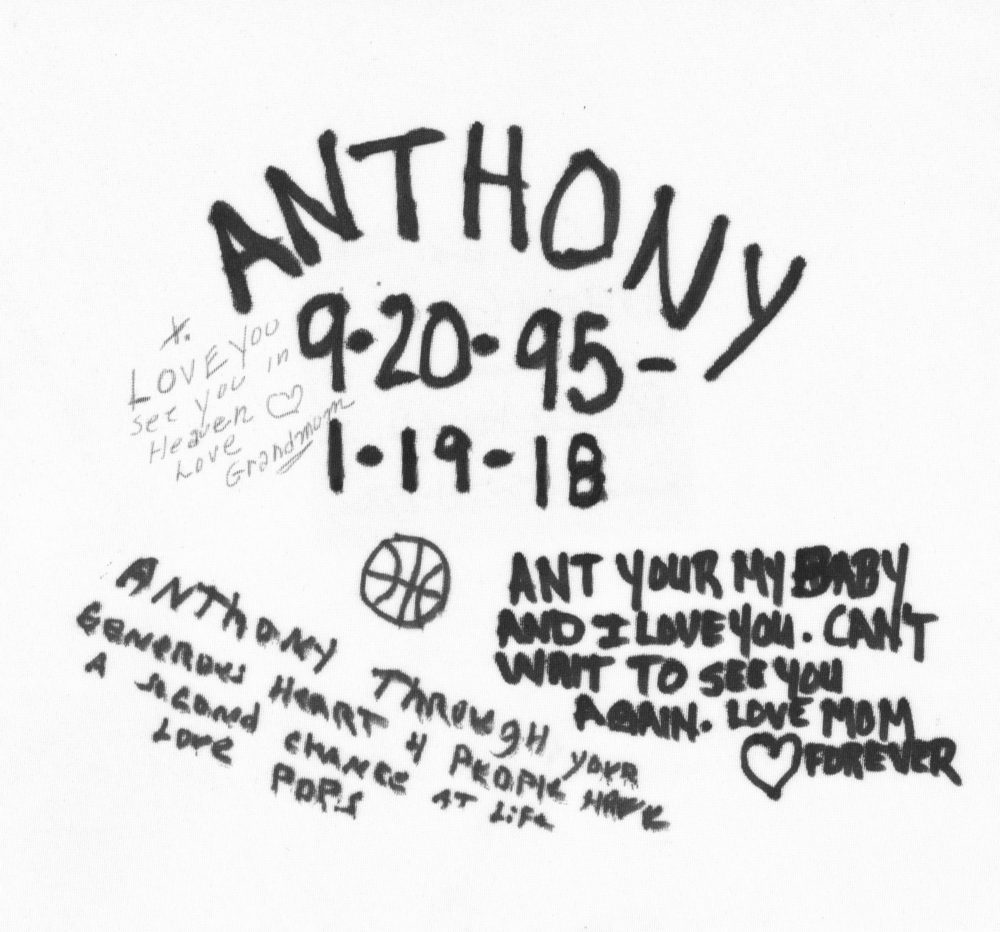 ANTHONY
9·20·95-
1·19·18
X.
LOVE YOU
see you in
Heaven
Love
Grandmom
ANT YOUR MY BABY
AND I LOVE YOU. CAN'T
WAIT TO SEE YOU
AGAIN. LOVE MOM
FOREVER
ANThONY ThROUGH YOUR
GENEROUS HEART 4 PEOPLE HAVE
A SECOND CHANCE AT LIFE
LOVE
POPS